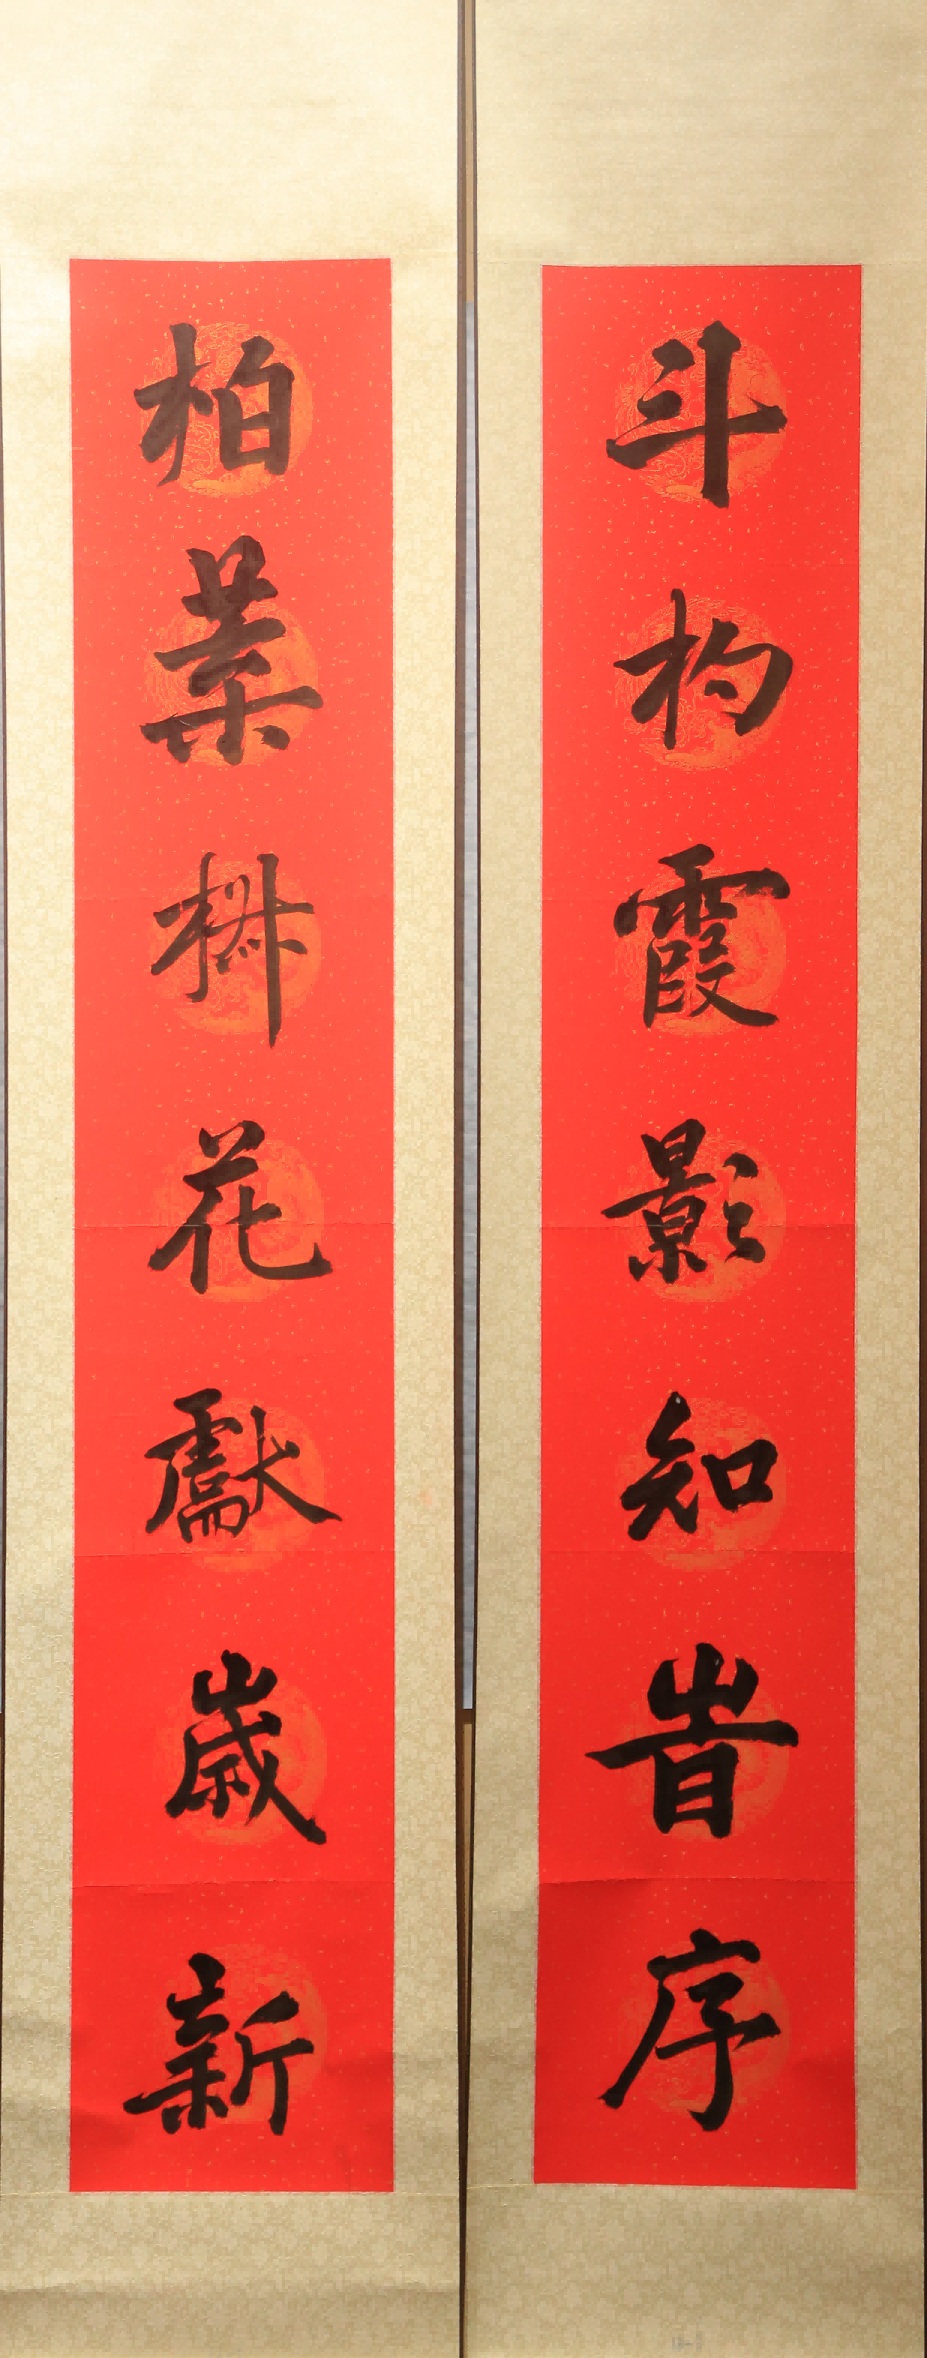 斗杓霞影知旹序
柏葉椒花獻歲新